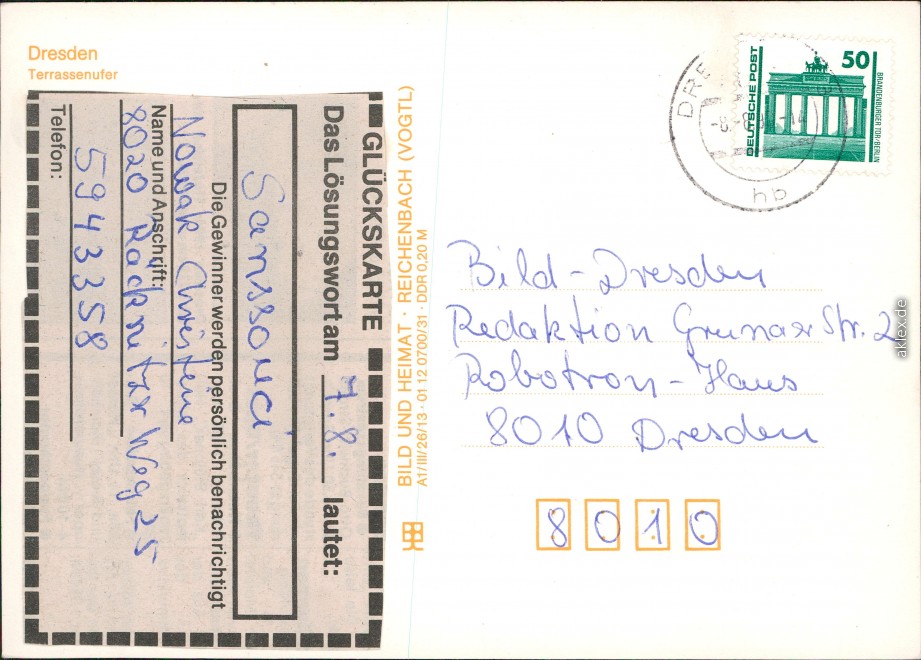 Dresden
Terrassenufer
GLÜCKSKARTE
Das Lösungswort am 7.8. lautet:
Sanssouci
Die Gewinner werden persönlich benachrichtigt
Nowak Christine
Name und Anschrift:
8020 Räcknitzer Weg 25
5943358
Telefon:
BILD UND HEIMAT · REICHENBACH (VOGTL)
A1/III/26/13 · 01 12 0700/31 · DDR 0,20 M
DEUTSCHE POST
50
BRANDENBURGER TOR/BERLIN
DRE
hb
Bild-Dresden
Redaktion Grunaer Str. 2
Robotron-Haus
8010 Dresden
8010
akpool.de